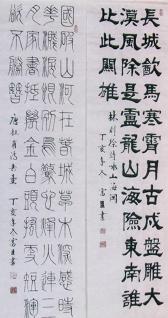 長城飲馬寒宵月古戍盤雕大
漠風除是盧龍山海險東南誰
比此關雄
丁亥年冬
國破山河在城春草木深感時
花濺淚恨別鳥驚心烽火連三
月家書抵萬金白頭搔更短渾
欲不勝簪
唐杜甫詩春望 丁亥年冬